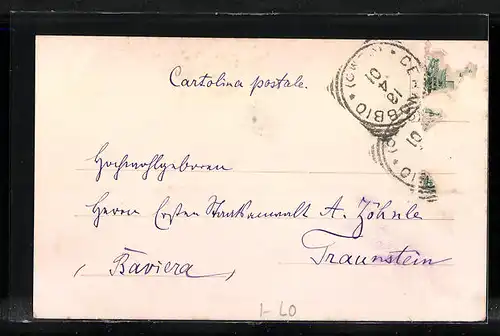 Cartolina postale.
CE
BBIO
13 4 01
01
IO
Hochwohlgeboren
Herrn Ersten Staatsanwalt A. Zöhnle
Traunstein
(Baviera)
1-LO